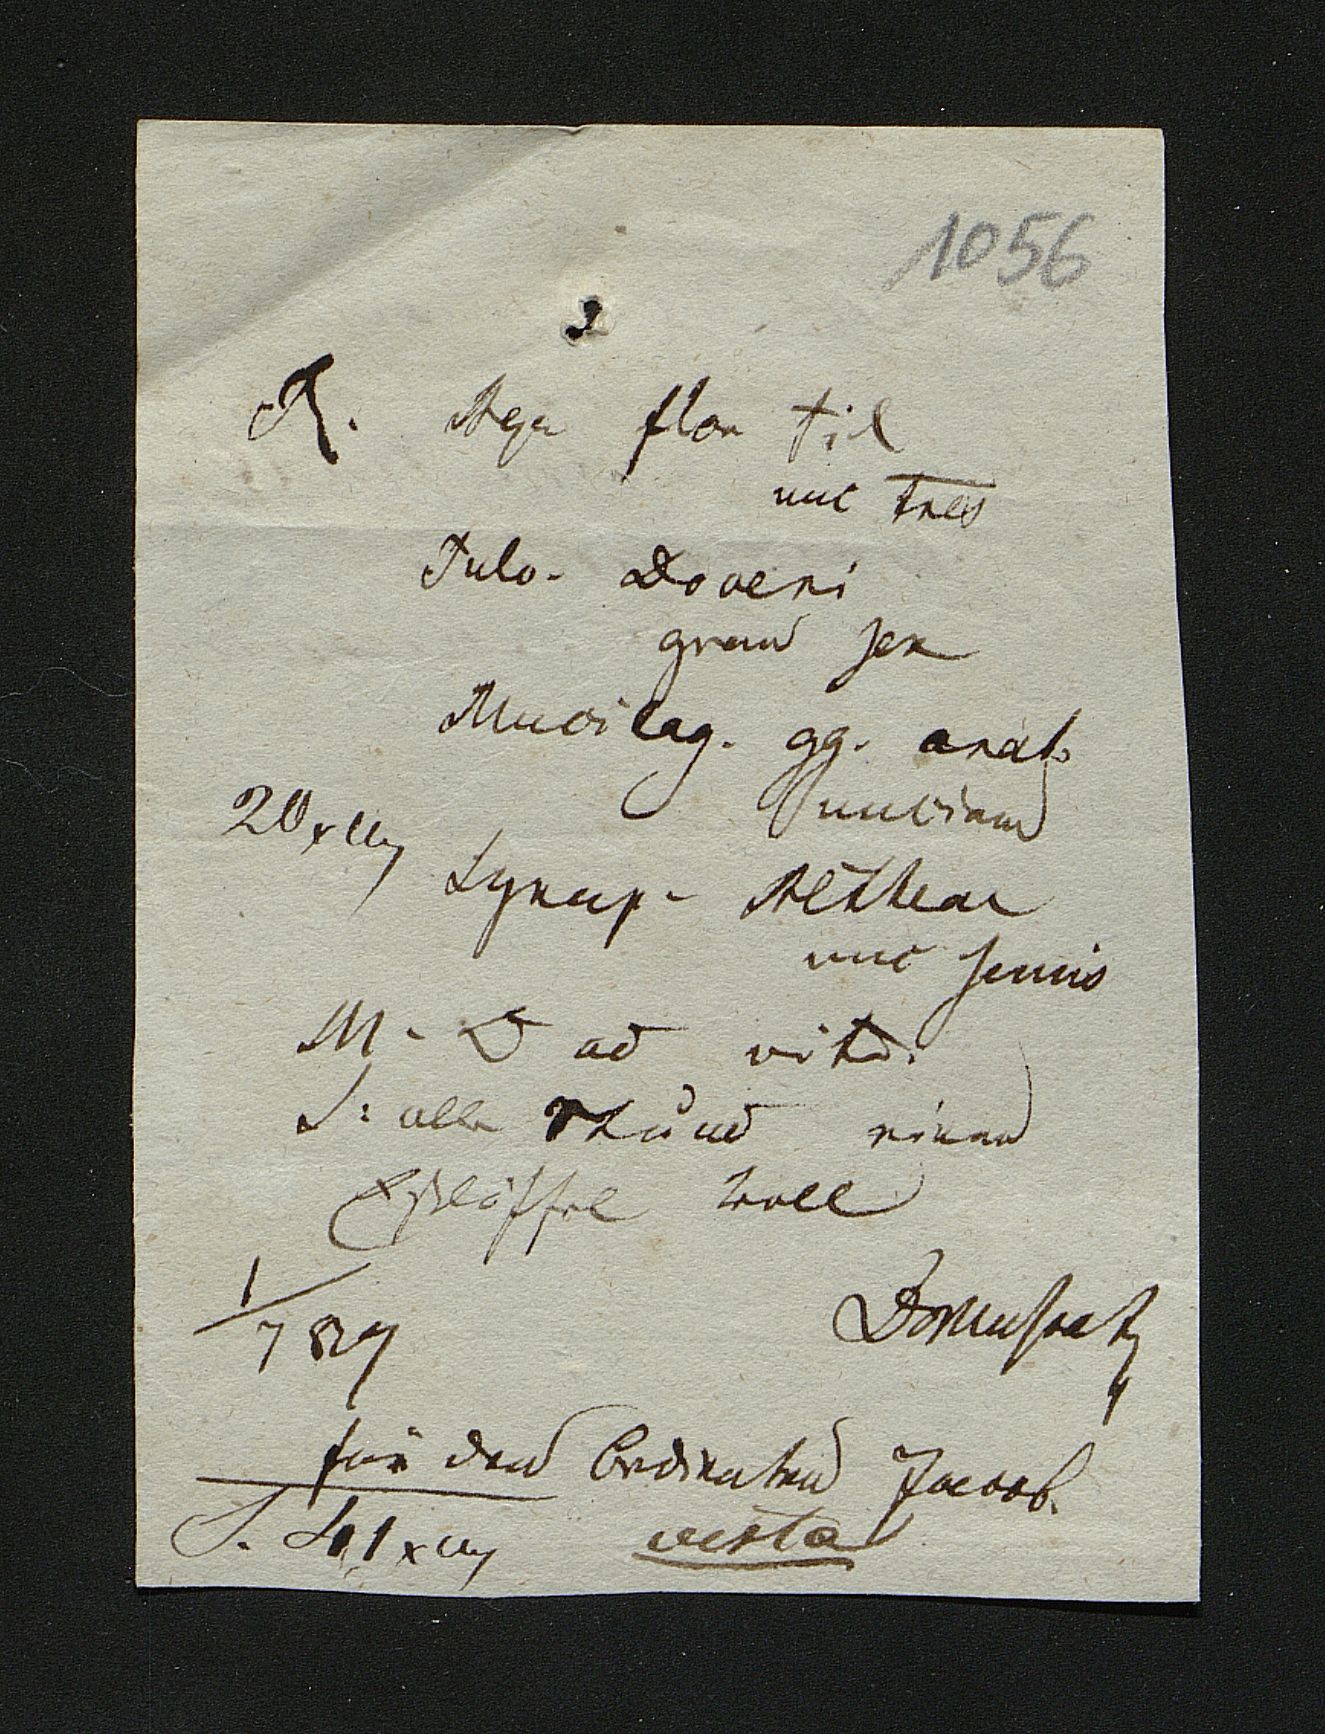 1056
R. Aqu flor til
unc tres
Pulv. Doveri
gran sex
Mucilag. gg. arab.
unciam
20 x
Syrup. Altheae
unc semis
M. D ad vitr.
S: alle Stund einen
Eßlöffel voll
1/7 829
für den bedienten Jacob.
S. 41 x